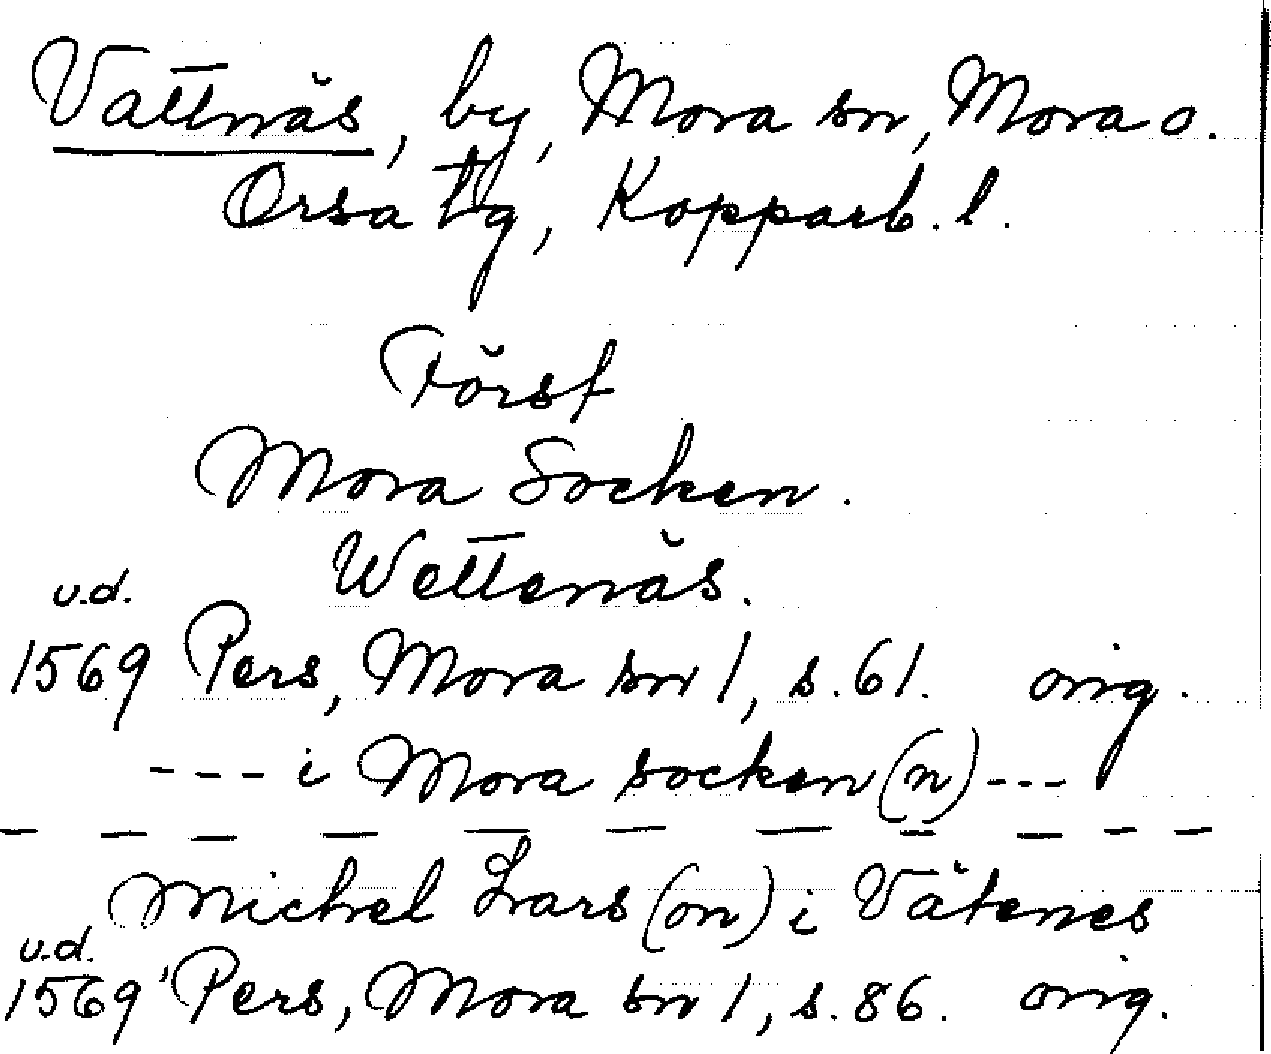 Vattnäs, by, Mora sn, Mora o.
Orsa tg, Kopparb. l.
Först
Mora Socken.
Wettenäs.
u.d.
1569 Pers, Mora sn 1, s. 61. orig.
--- i Mora socken (n) ---
Michel Lars (on) i Vätenes
u.d.
1569 Pers, Mora sn 1, s. 86. orig.